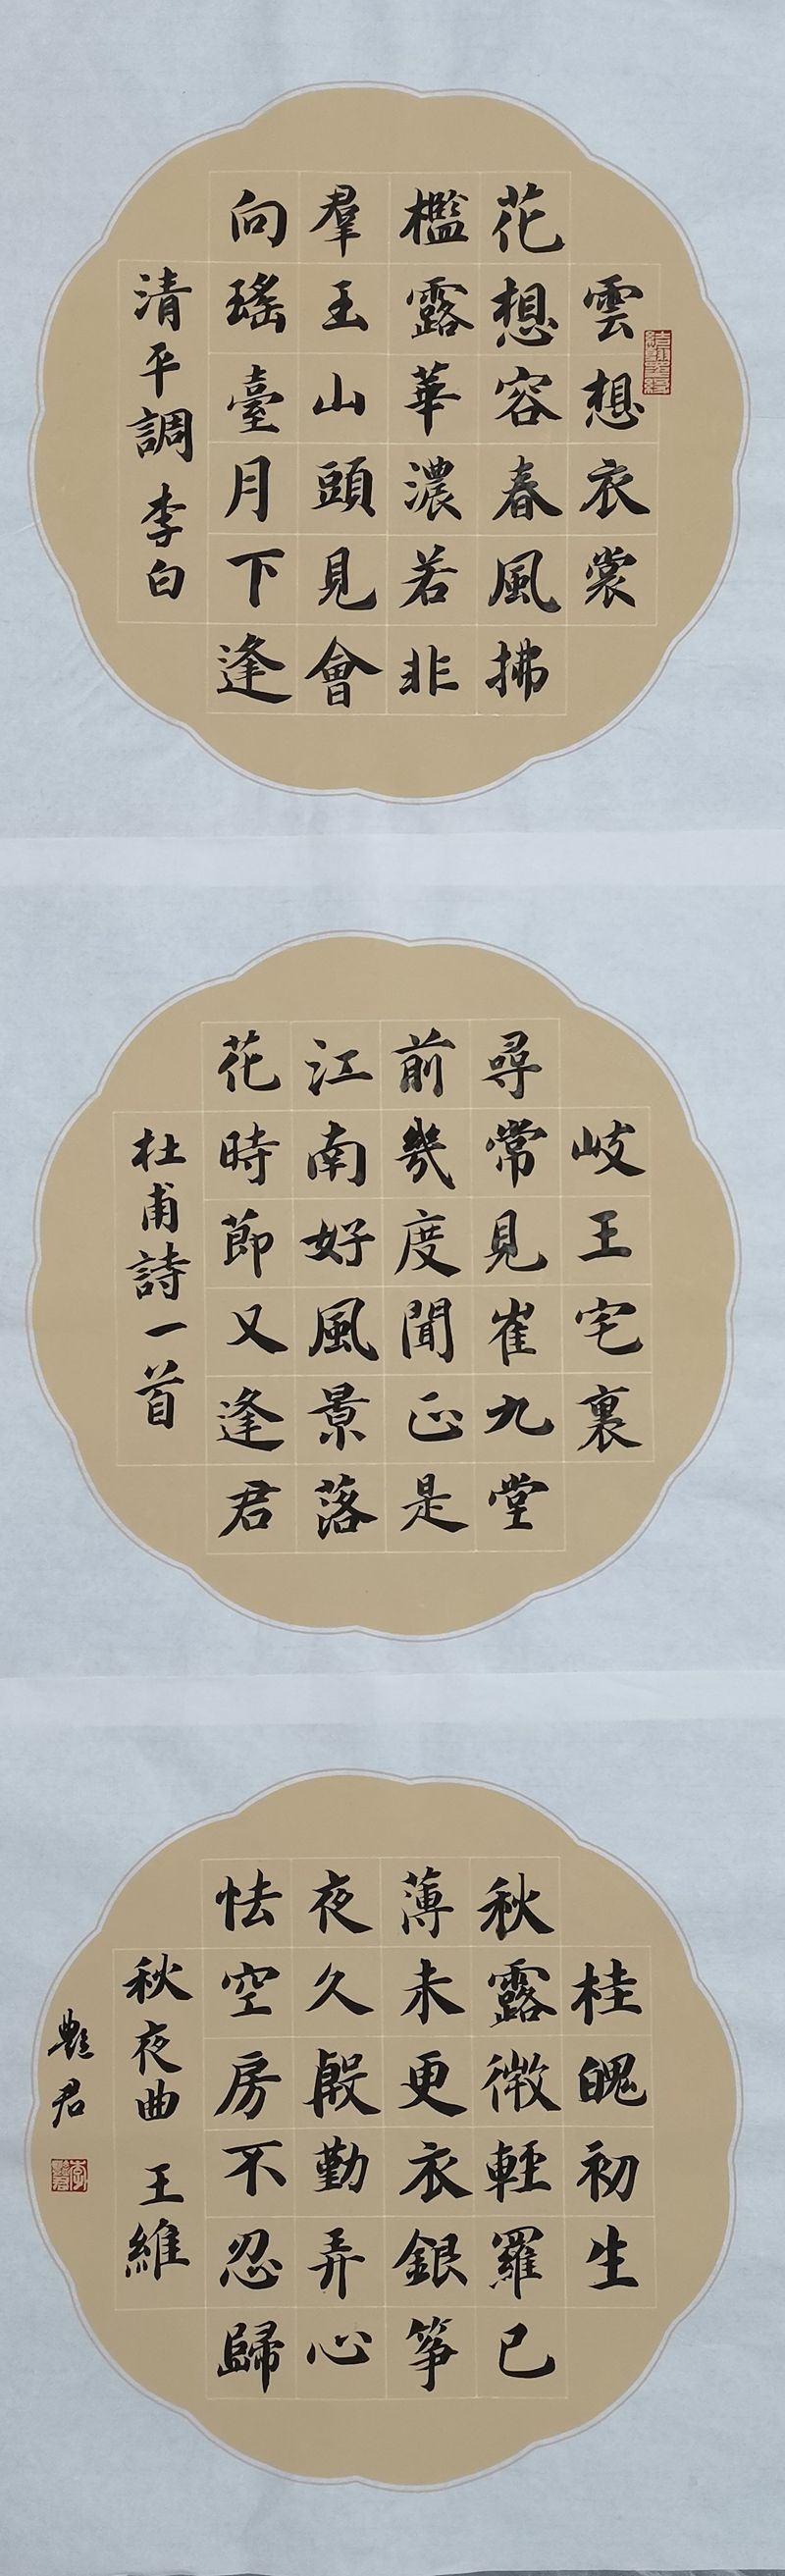 雲想衣裳
花想容春風拂
檻露華濃若非
羣玉山頭見會
向瑤臺月下逢
清平調 李白
岐王宅裏
尋常見崔九堂
前幾度聞正是
江南好風景落
花時節又逢君
杜甫詩一首
桂魄初生
秋露微輕羅已
薄未更衣銀筝
夜久殷勤弄心
怯空房不忍歸
秋夜曲 王維
艷君